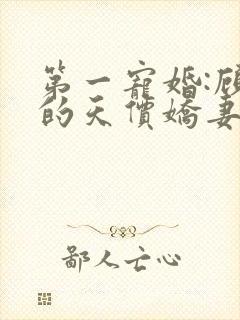 第一寵婚:顧
的天價嬌妻
鄙人亡心